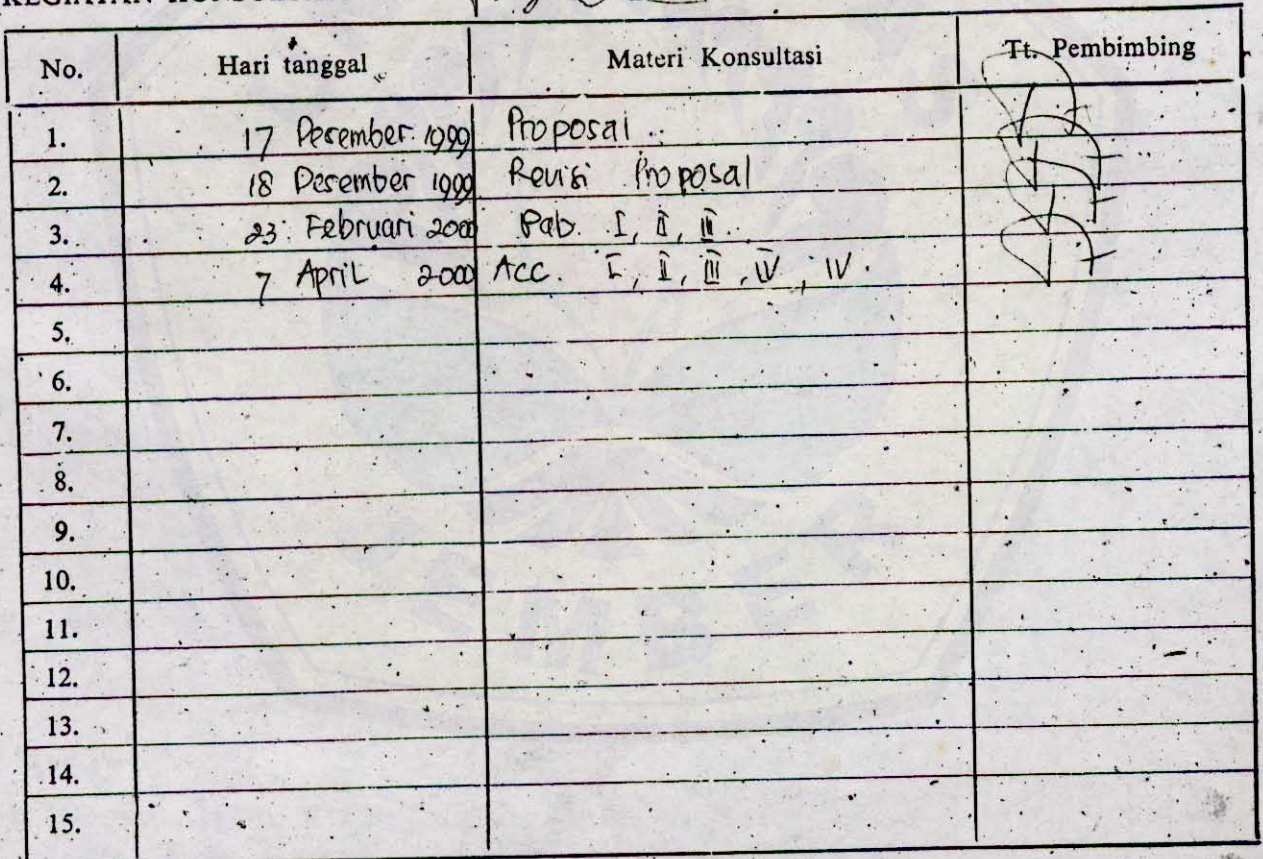 No. Hari tanggal Materi Konsultasi Tt. Pembimbing
1. 17 Desember 1999 Proposal
2. 18 Desember 1999 Revisi Proposal
3. 23 Februari 2000 Bab. I, II, III.
4. 7 April 2000 Acc. I, II, III, IV, IV.
5.
6.
7.
8.
9.
10.
11.
12.
13.
14.
15.